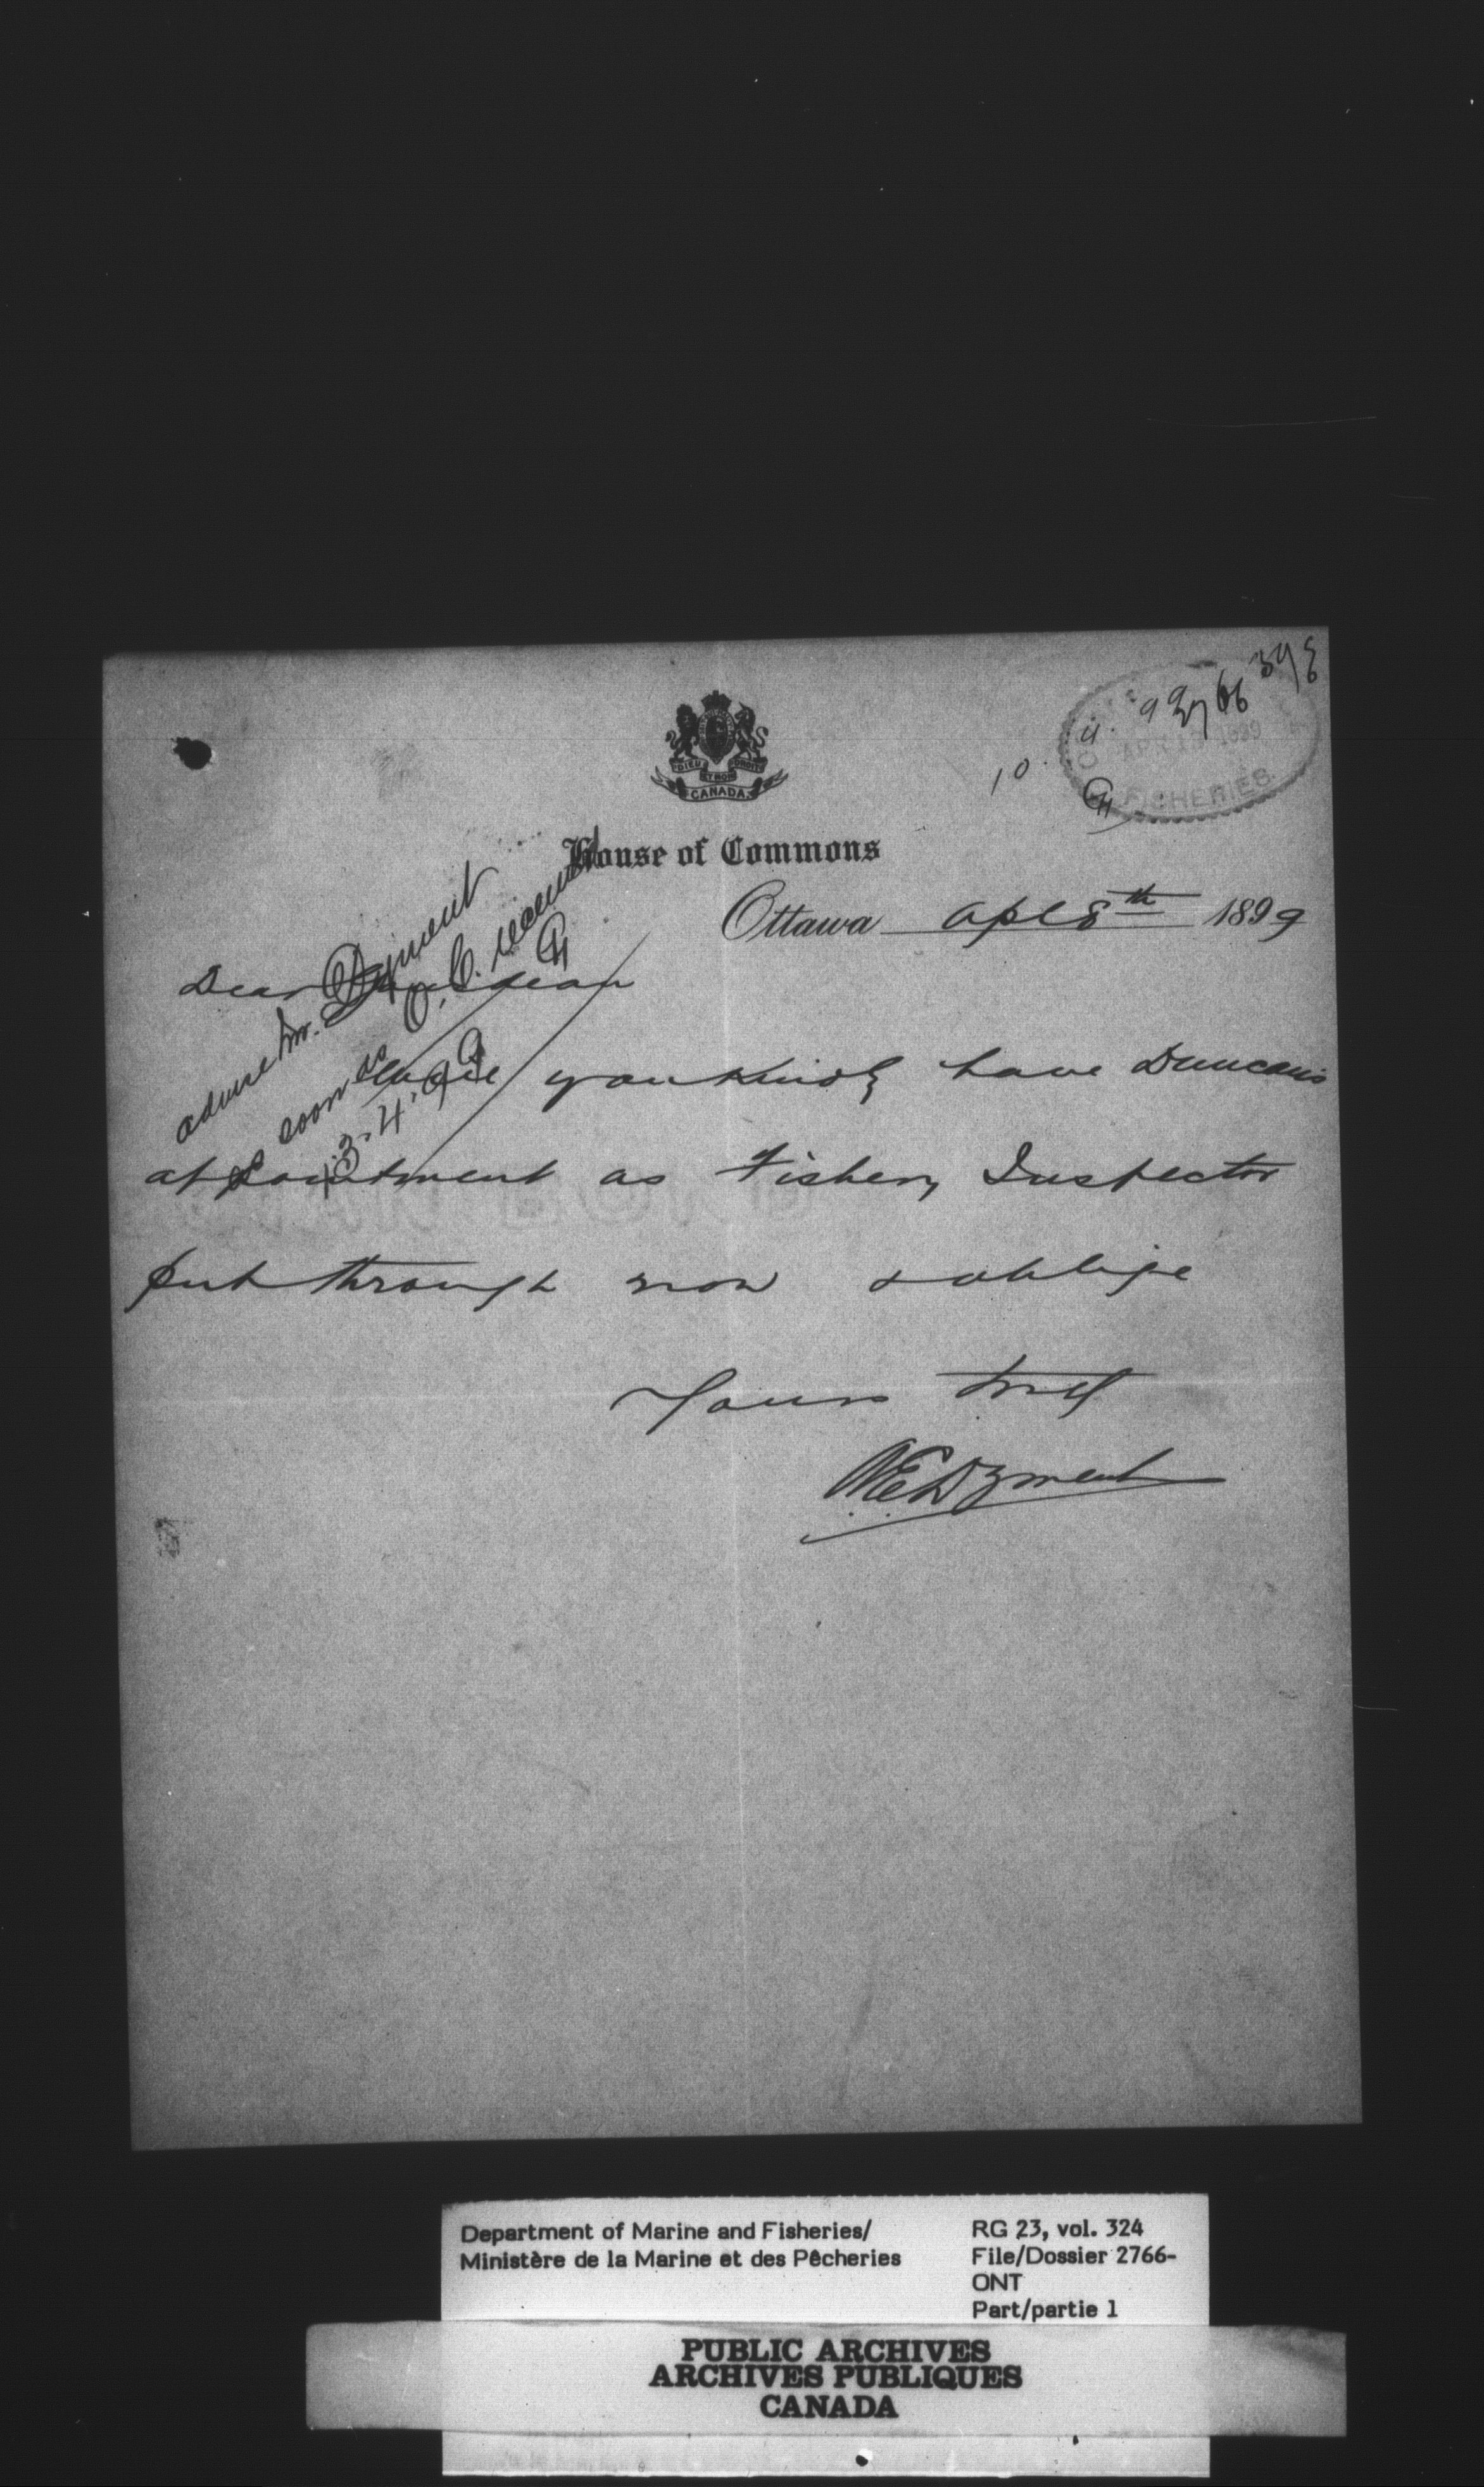 3913
2766
10. 4. 99
APR 13 1899
FISHERIES
DIEU ET MON DROIT
CANADA
House of Commons
Ottawa Apl 8th 1899
Dear
advise Mr. Dyment
soon as O. C. received
13.4.99
you kindly have Duncan's
appointment as Fishery Inspector
put through now & oblige
Yours truly
A E Dyment
Department of Marine and Fisheries/
Ministère de la Marine et des Pêcheries
RG 23, vol. 324
File/Dossier 2766-
ONT
Part/partie 1
PUBLIC ARCHIVES
ARCHIVES PUBLIQUES
CANADA